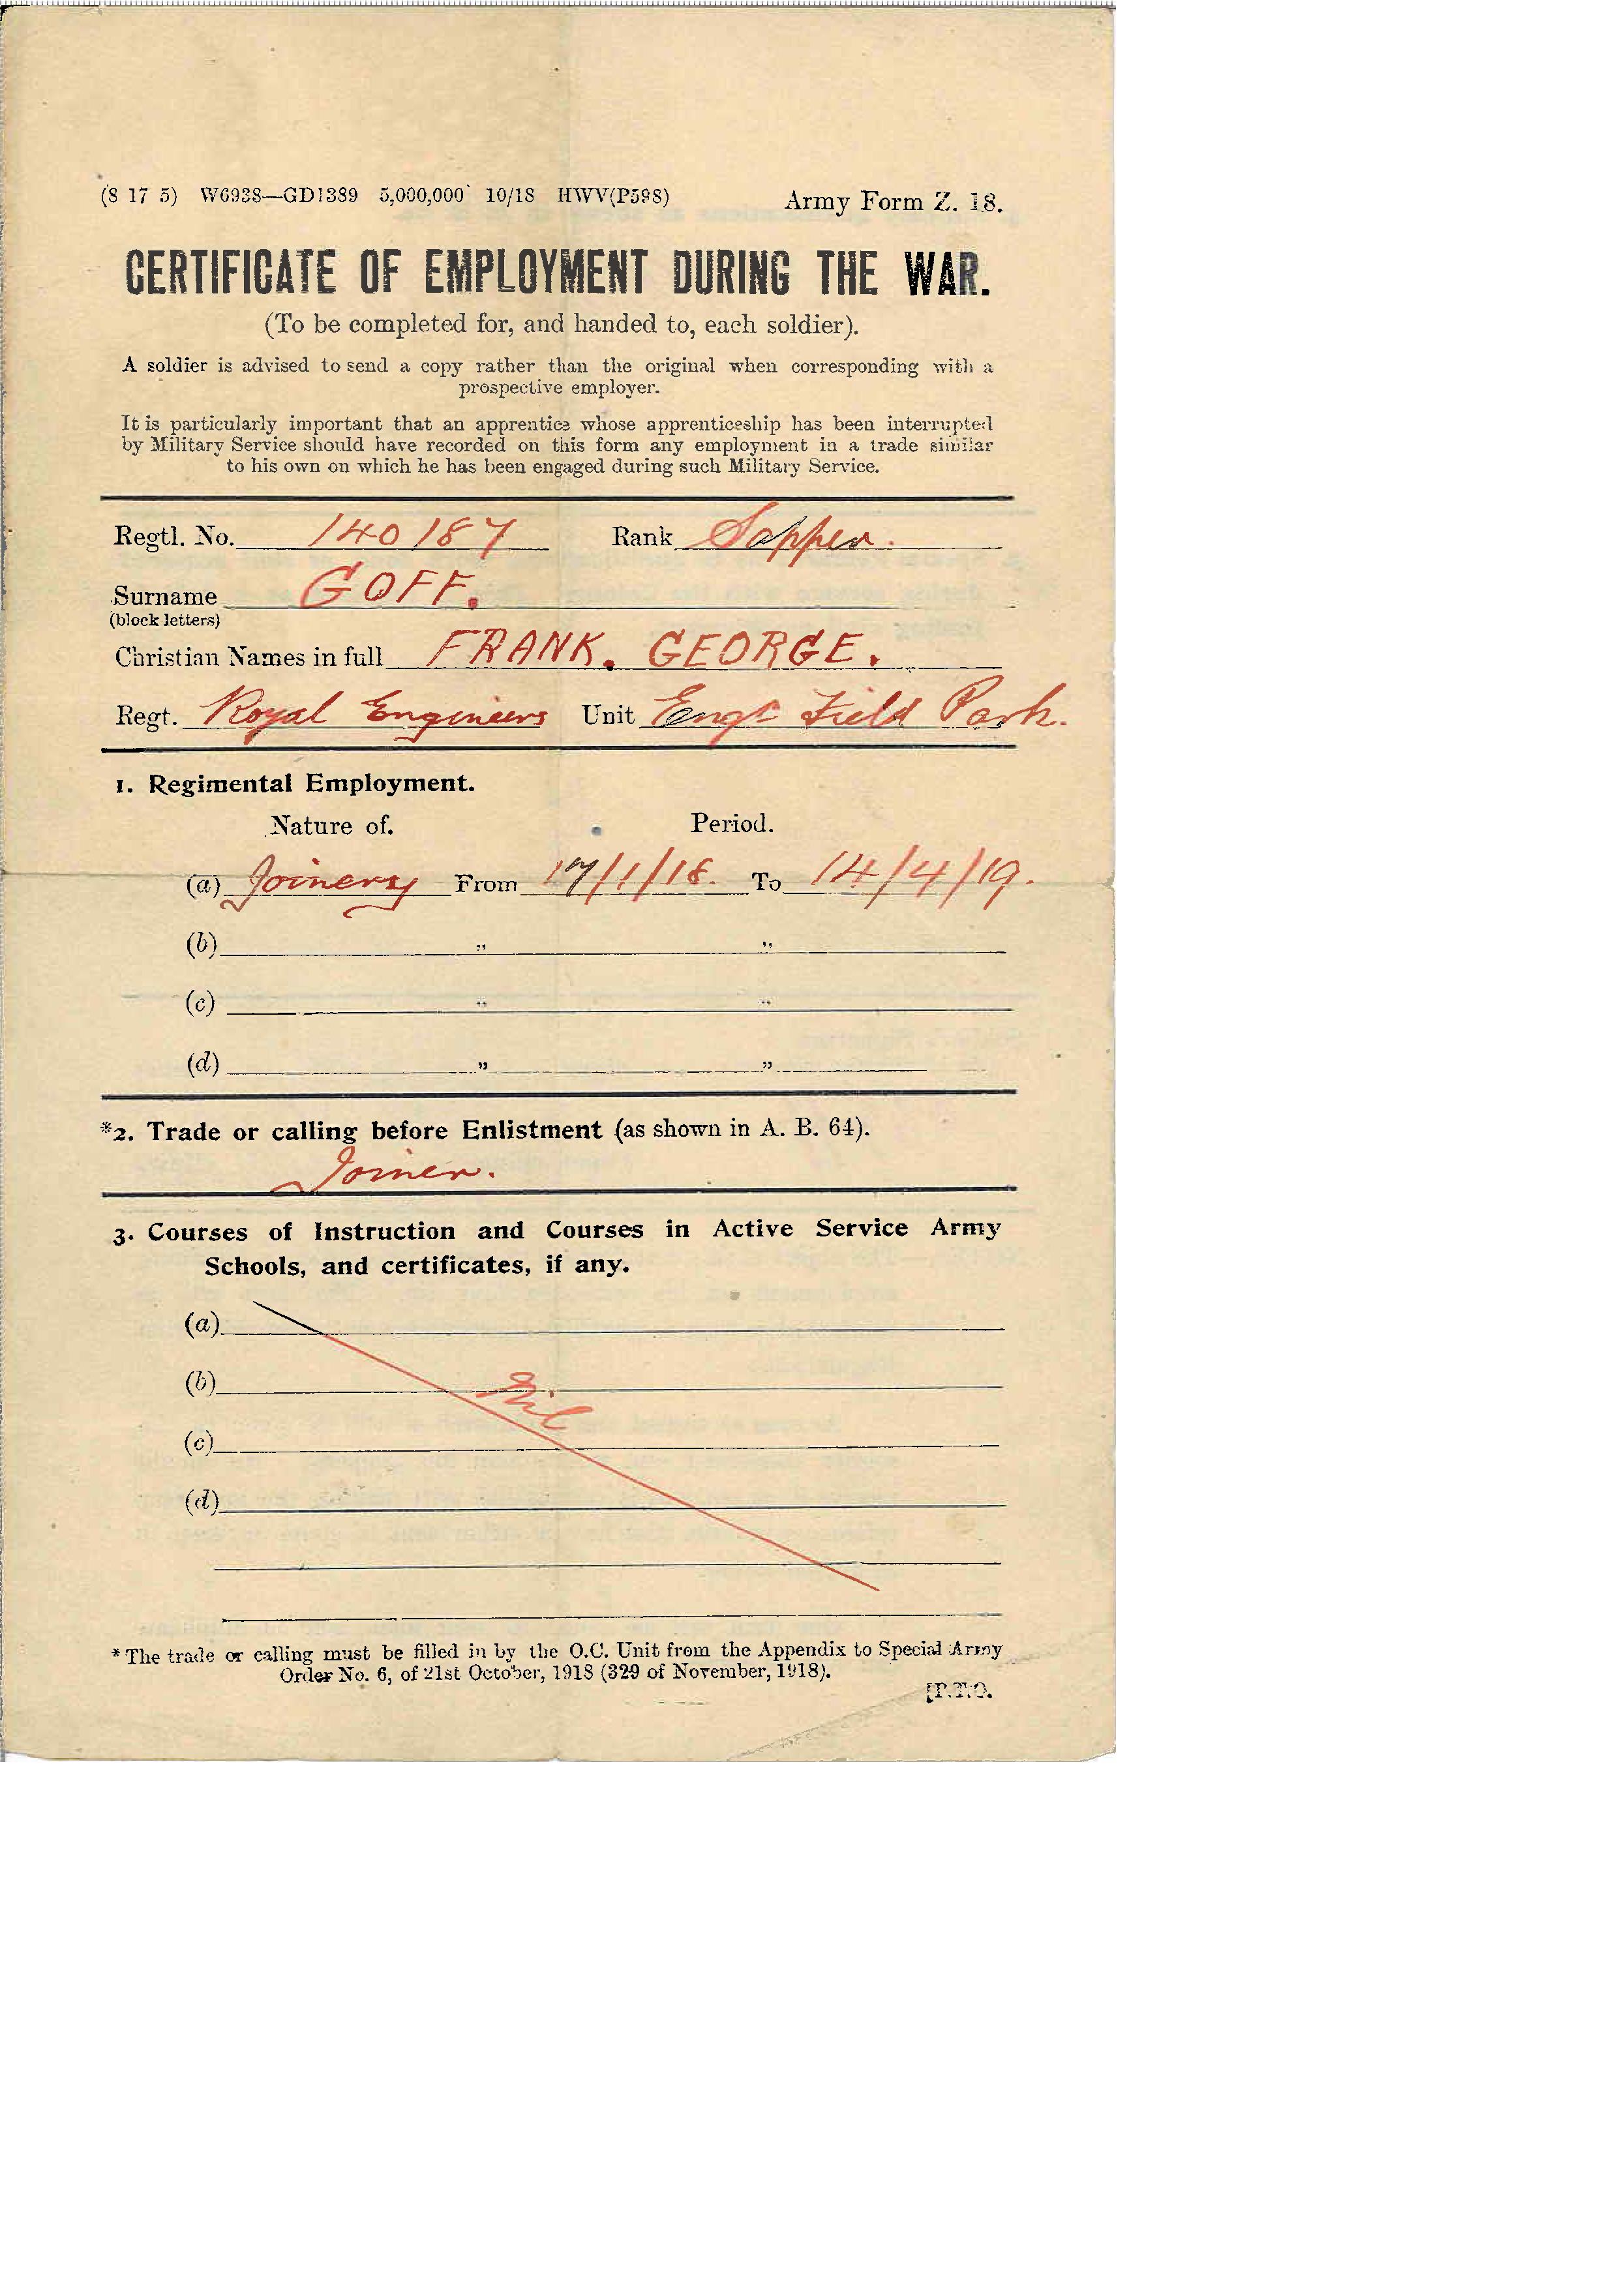 (8 17 5) W6938—GD1389 5,000,000 10/18 HWV(P598) Army Form Z. 18.
CERTIFICATE OF EMPLOYMENT DURING THE WAR.
(To be completed for, and handed to, each soldier).
A soldier is advised to send a copy rather than the original when corresponding with a
prospective employer.
It is particularly important that an apprentice whose apprenticeship has been interrupted
by Military Service should have recorded on this form any employment in a trade similar
to his own on which he has been engaged during such Military Service.
Regtl. No. 140187 Rank Sapper.
Surname GOFF.
(block letters)
Christian Names in full FRANK. GEORGE.
Regt. Royal Engineers Unit Engr Field Park.
1. Regimental Employment.
Nature of. Period.
(a) Joinery From 17/1/16. To 14/4/19.
(b) " "
(c) " "
(d) " "
*2. Trade or calling before Enlistment (as shown in A. B. 64).
Joiner.
3. Courses of Instruction and Courses in Active Service Army
Schools, and certificates, if any.
(a)
(b) Nil
(c)
(d)
*The trade or calling must be filled in by the O.C. Unit from the Appendix to Special Army
Order No. 6, of 21st October, 1918 (329 of November, 1918).
[P.T.O.